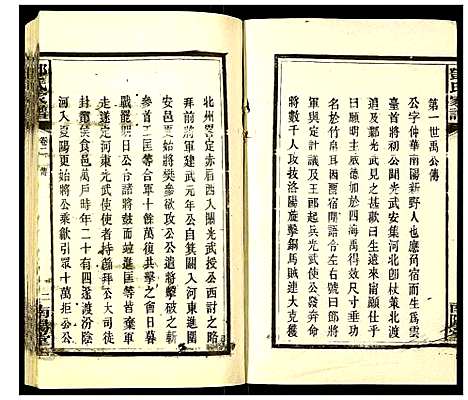 鄧氏家譜
第一世禹公傳
公字仲華南陽新野人也應角宿而生爲雲
臺首將初公聞光武安集河北卽杖策北渡
至鄴光武見之甚歡曰生遠來寧欲仕乎公
曰願明主威加於四海禹得效尺寸垂功
名於竹帛耳因留公幕中左右號曰鄧將
軍與定計議及王郎起兵光武使公發奔命
數千人攻技洛陽旋擊銅馬賊連大克獲
北州畧定赤眉西入關光武授公西討之略
拜前將軍建武元年公自箕關入河東進圍
安邑更始將樊參欲攻公公遣將擊破之斬
參首王匡等合軍十餘萬復共擊之會日暮
戰罷明日公合諸將鼓譟而進匡等皆棄軍
走遂定河東光武使使者持節拜公大司徒
封酇侯食邑萬戶時年二十有四遂渡汾陰
河入夏陽更始將公乘歙引眾十萬拒公公
鄧氏家譜
卷二
傳
二
南陽堂
南陽堂